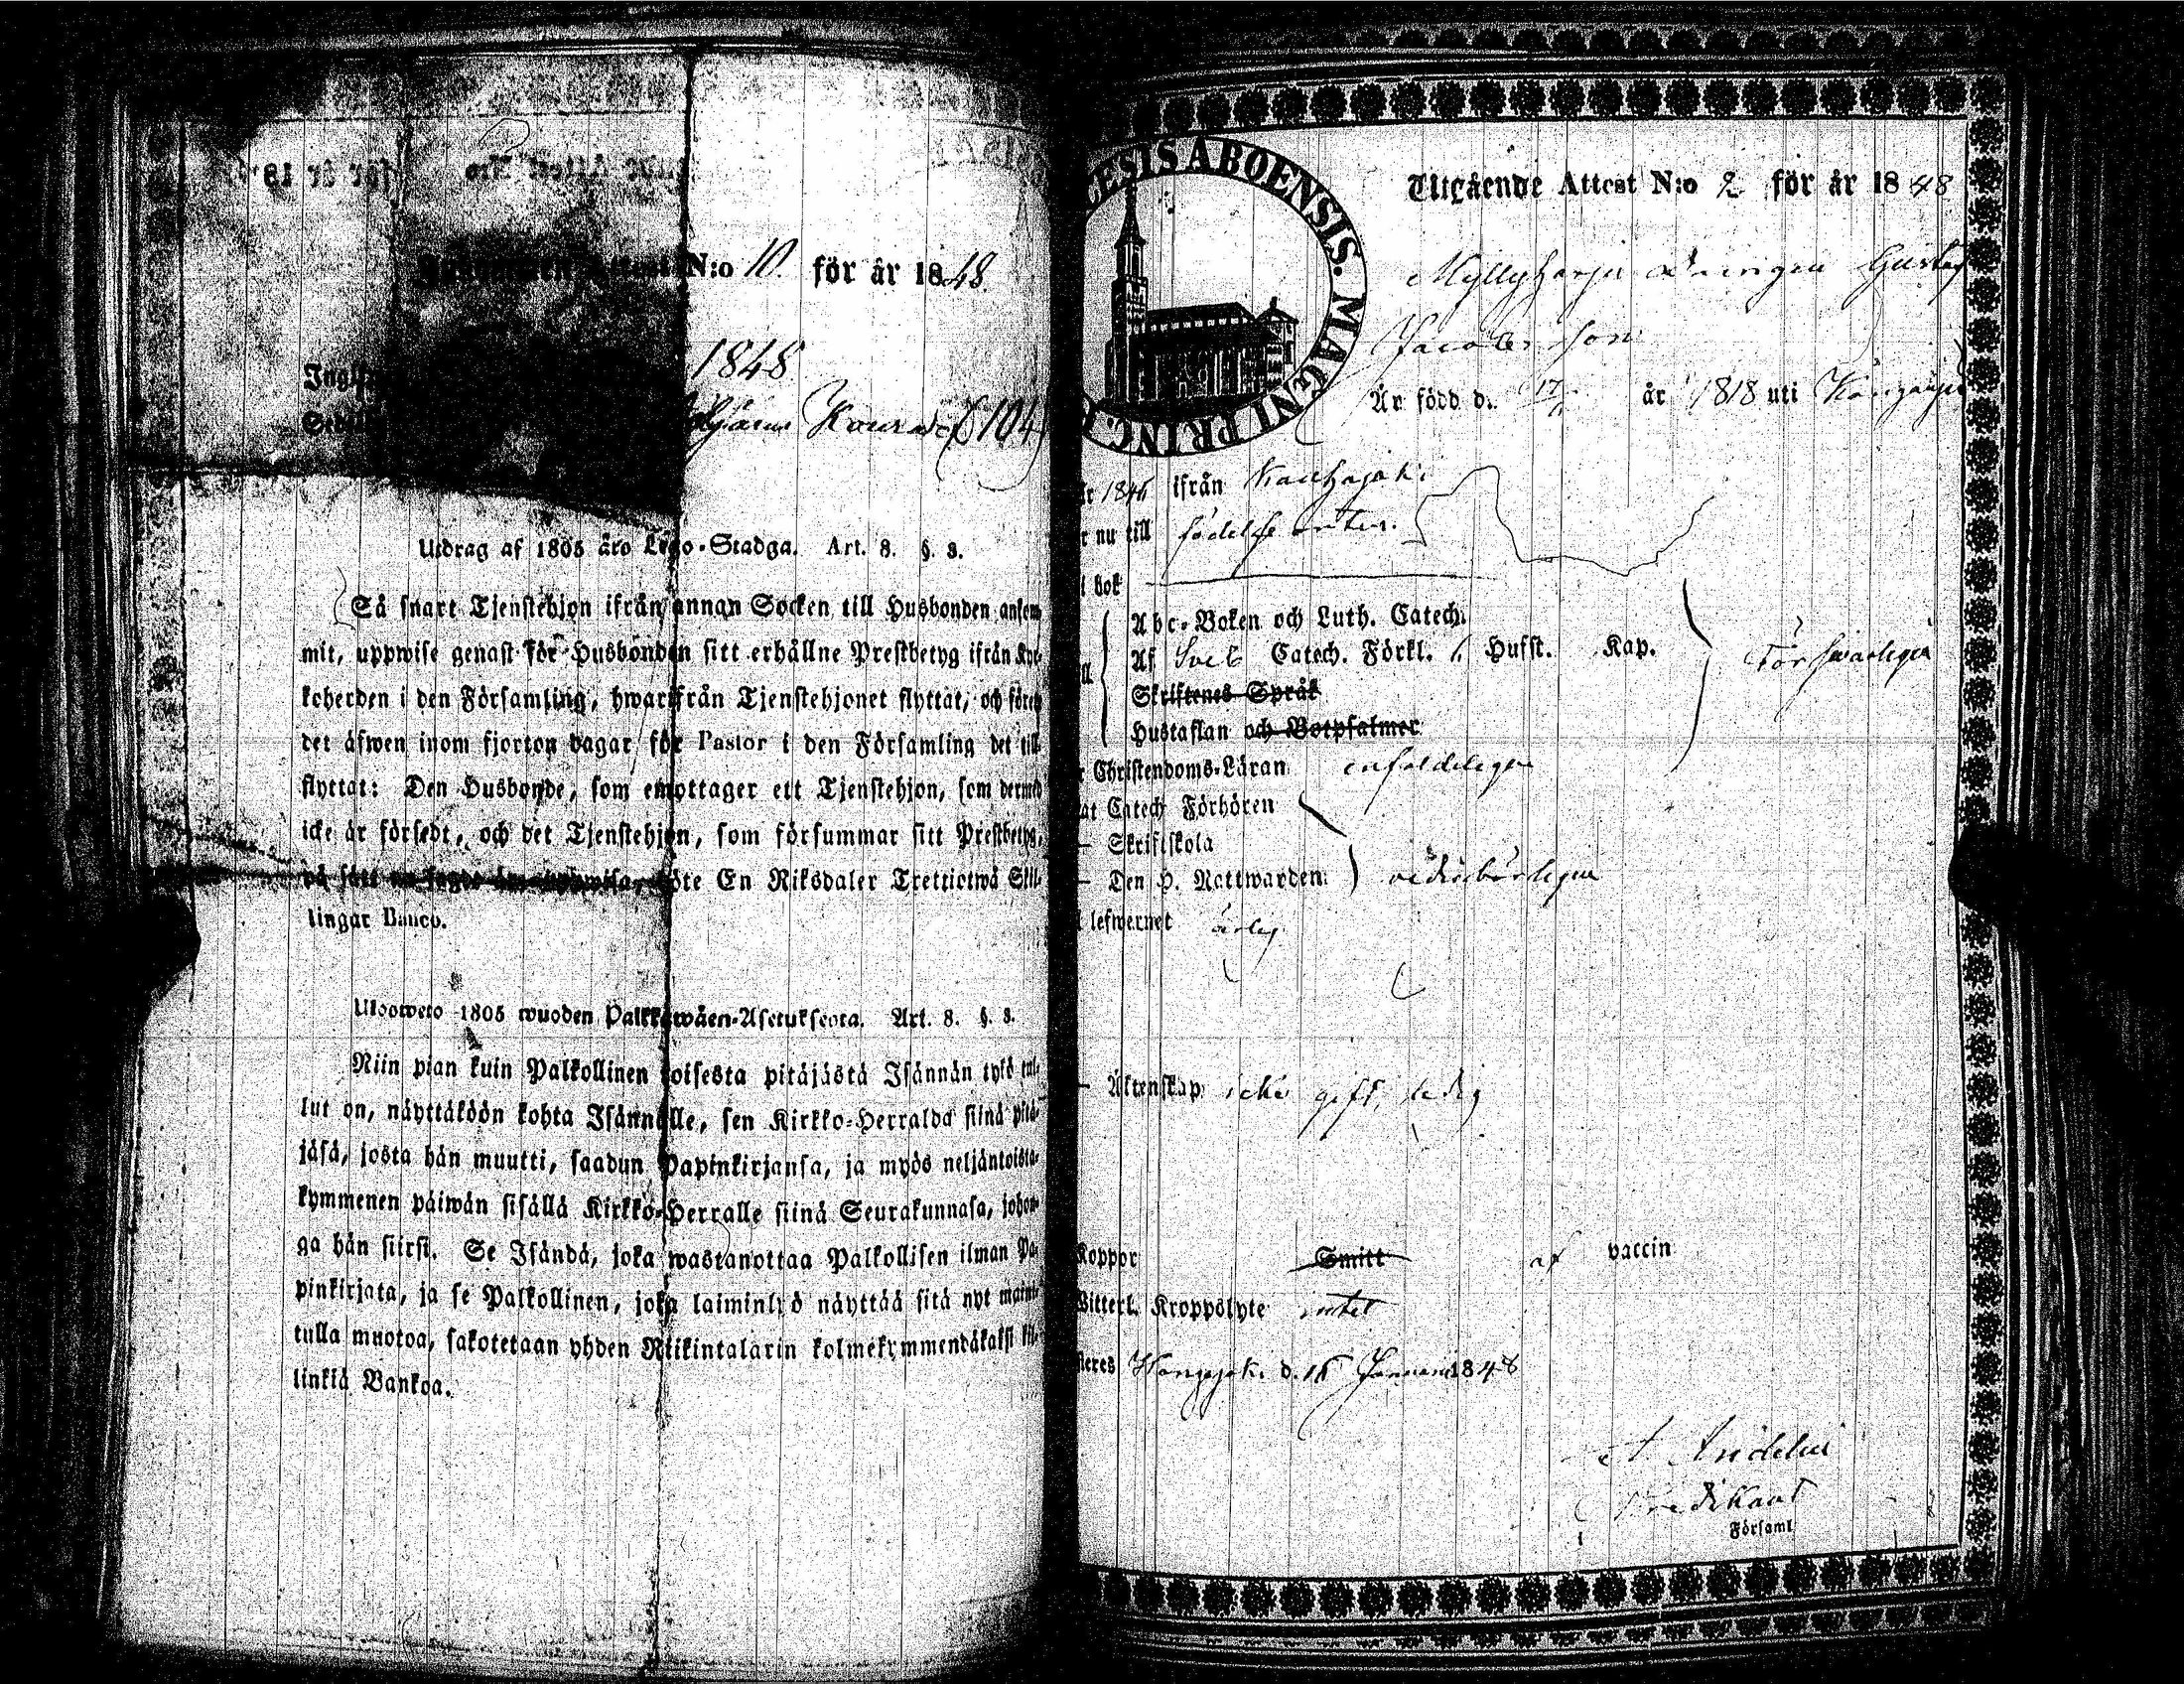 N:o 10. för år 1848
1848
Utdrag af 1805 års Lego-Stadga. Art. 8. §. 3.
Så snart Tjenstehjon ifrån annan Socken till Husbonden ankom-
mit, uppwise genast för Husbonden sitt erhållne Prestbetyg ifrån Kyr-
koherden i den Församling, hwarifrån Tjenstehjonet flyttat, och förete
det äfwen inom fjorton dagar för Pastor i den Församling det till-
flyttat: Den Husbonde, som emottager ett Tjenstehjon, som dermed
icke är försedt, och det Tjenstehjon, som försummar sitt Prestbetyg,
på sätt nu sagdt är, uppwisa, böte En Riksdaler Trettiotwå Skil-
lingar Banco.
Ulosweto 1805 wuoden Palkkawäen-Asetuksesta. Art. 8. §. 3.
Niin pian kuin Palkollinen toisesta pitäjästä Isännän tykö tul-
lut on, näyttäköön kohta Isännälle, sen Kirkko-Herralda siinä pitä-
jäsä, josta hän muutti, saadun Papinkirjansa, ja myös neljäntoista-
kymmenen päiwän sisällä Kirkko-Herralle siinä Seurakunnasa, johon-
ga hän siirsi. Se Isändä, joka wastanottaa Palkollisen ilman Pa-
pinkirjata, ja se Palkollinen, joka laiminlyö näyttää sitä nyt mainit-
tulla muotoa, sakotetaan yhden Riikintalarin kolmekymmendäkaksi kil-
linkiä Bankoa.
CESIS ABOENSIS. MAGNI PRINC.
Utgående Attest N:o 2 för år 1848
Gustaf
Jacobsson
Är född d. 17 år 1818 uti
ifrån Kauhajoki
nu till födelse orten.
bok
Abc-Boken och Luth. Catech.
Af Sveb Catech. Förkl. Husst. Kap. Försvarligen
Skriftenes Språk
Hustaflan och Botpsalmer
Christendoms-Läran enfaldeligen
Catech Förhören
Skriftskola
Den H. Nattwarden vederbörligen
lefwernet ärlig
Äktenskap icke gift, ledig
Koppor Smitt af vaccin
Witterl. Kroppslyte intet
d. 1848
Predikant
Församl